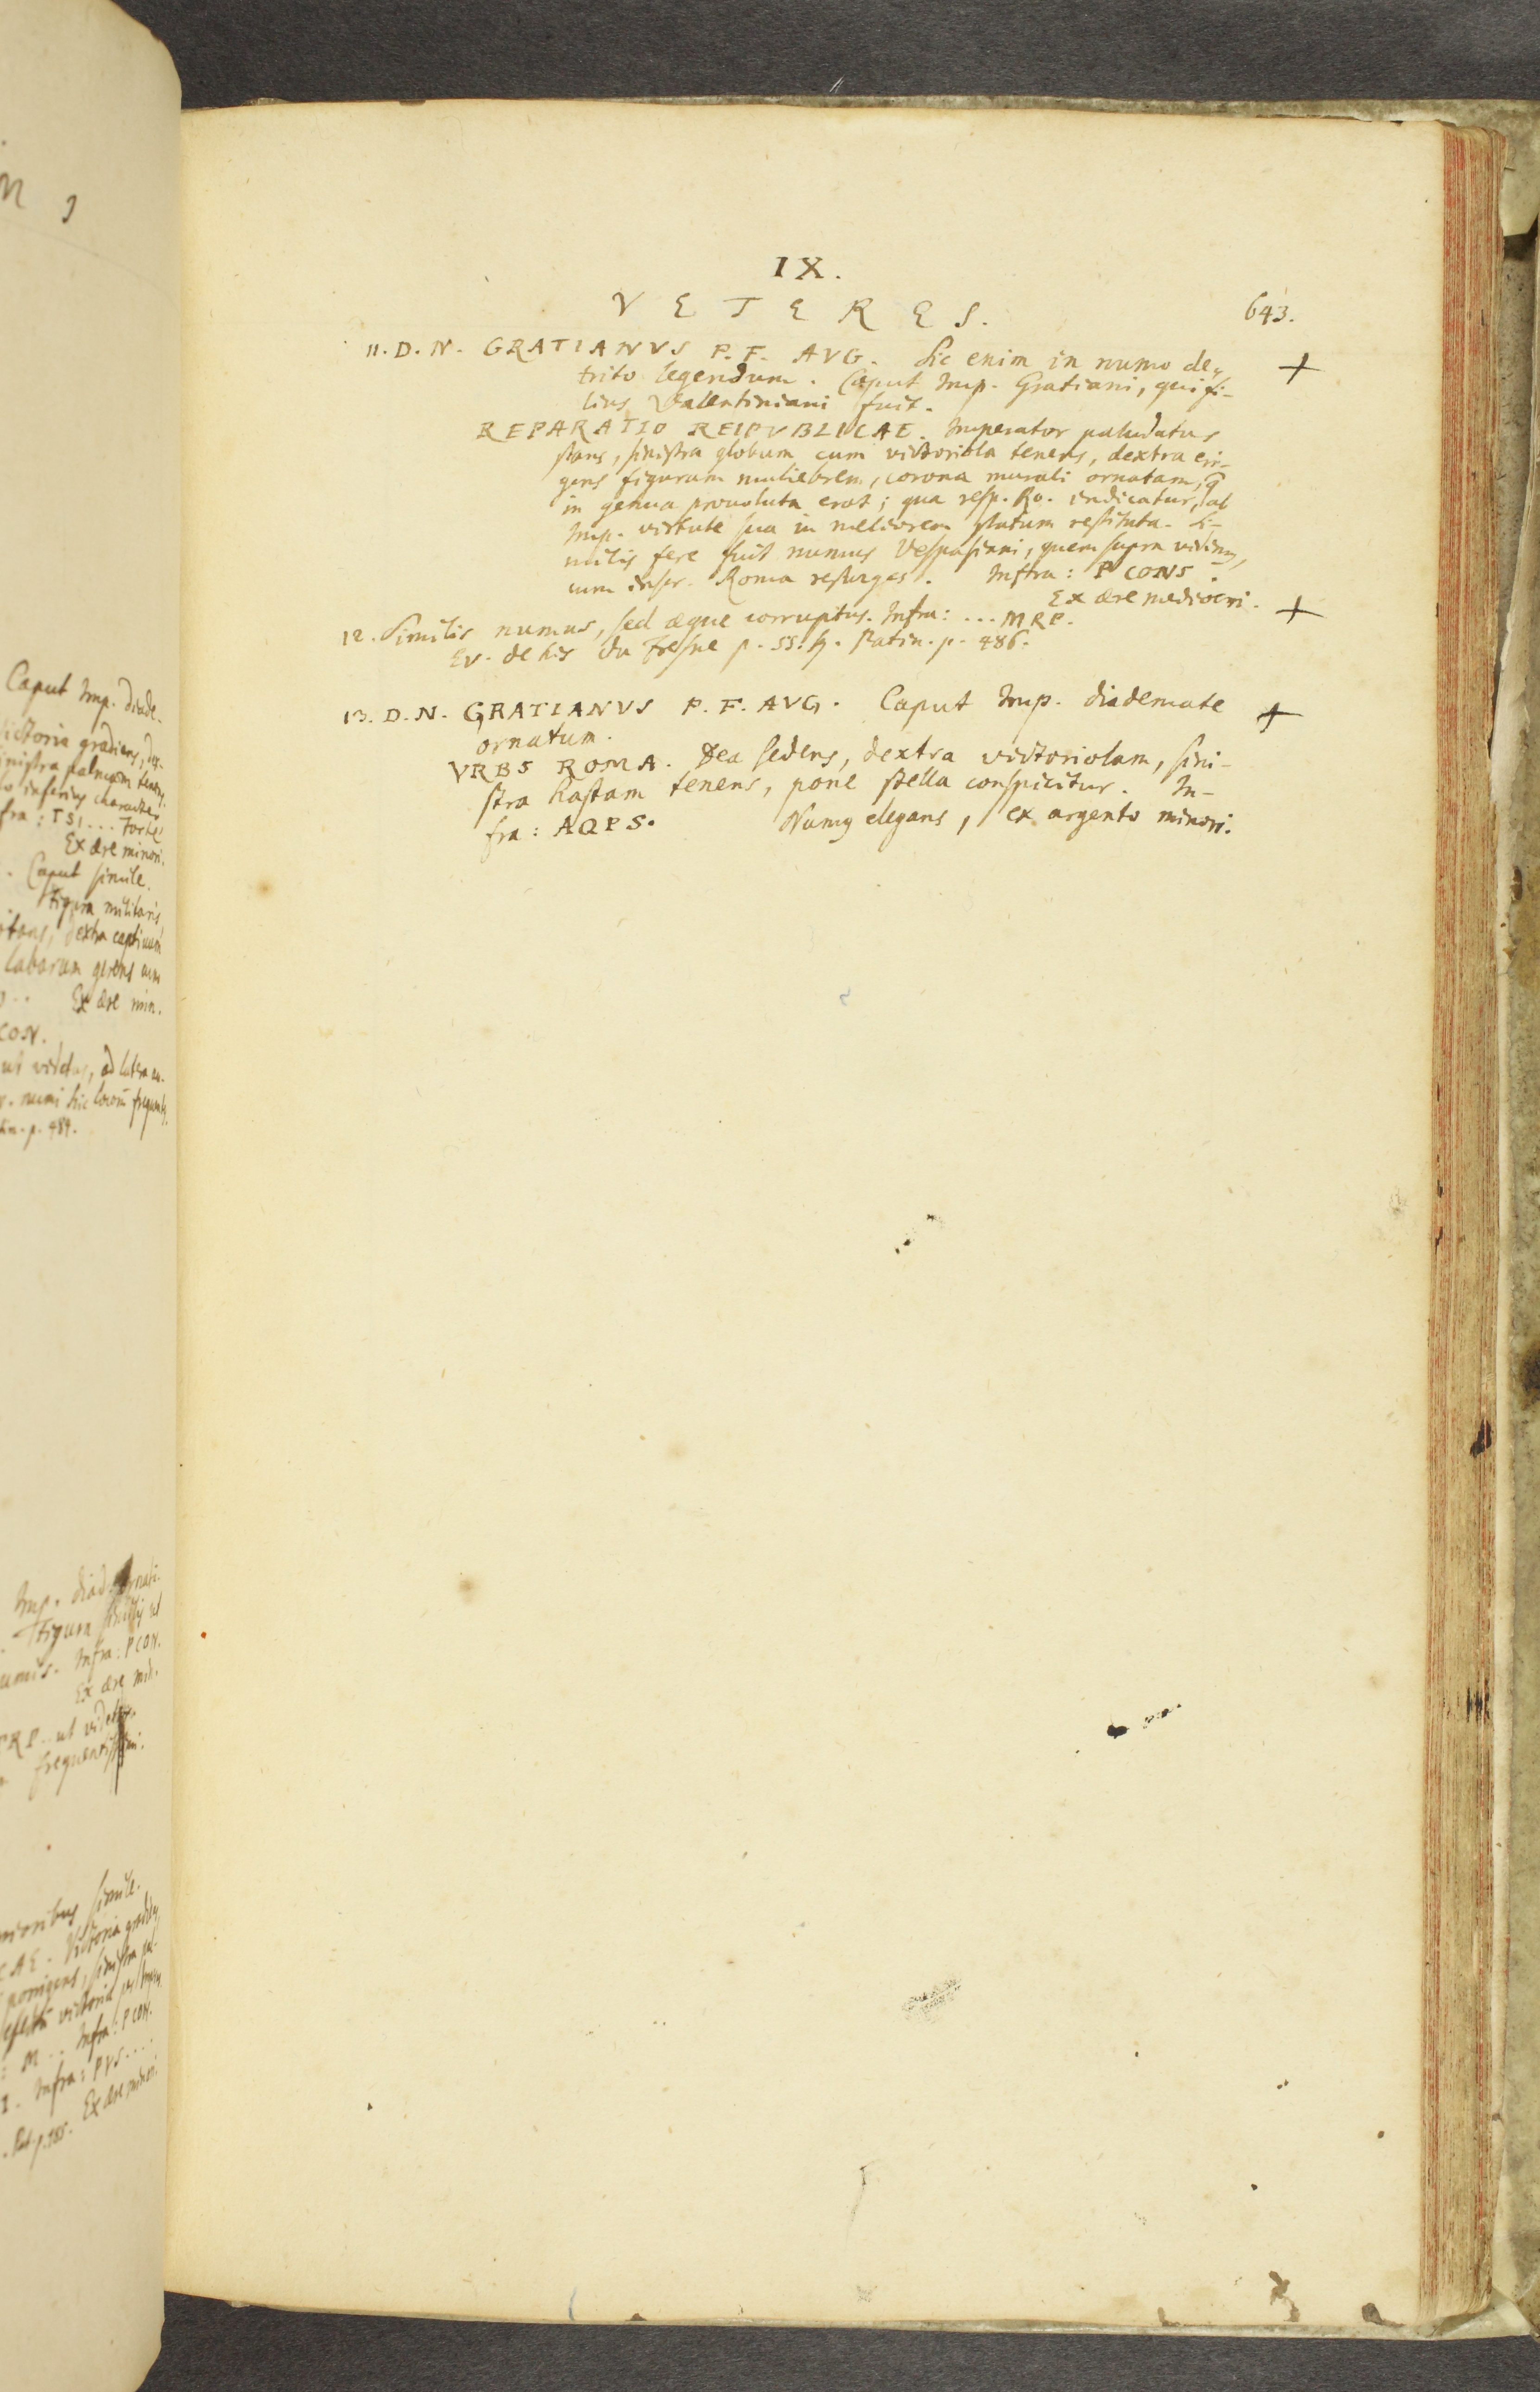 IX.
VETERES. 643.
11. D. N. GRATIANVS P. F. AVG. Sic enim in numo de„
trito legendum. Caput Imp. Gratiani, qui fi-
lius Valentiniani fuit.
REPARATIO REIPVBLICAE. Imperator paludatus
stans, sinistra globum cum victoriola tenens, dextra eri-
gens figuram muliebrem, corona murali ornatam, q̃
in genua prouoluta erat; qua resp. Ro. indicatur, ab
Imp. virtute sua in meliorem statum restituta. Si-
milis fere fuit numus Vespasiani, quem supra vidimus,
cum inscr. Roma resurges. Infra: P CONS.
Ex ære mediocri.
12. Similis numus, sed æque corruptus. Infra: ... MRP.
Ev. de his du Fresne p. 55. Patin. p. 486.
13. D. N. GRATIANVS P. F. AVG. Caput Imp. diademate
ornatum.
VRBS ROMA. Dea sedens, dextra victoriolam, sini-
stra hastam tenens, pone stella conspicitur. In-
fra: AQPS. Numus elegans, ex argento minori.
Caput Imp. diade-
victoria gradiens, dex-
inistra palmam tenens
inferius character
fra: TSI... Forte
Ex ære minori.
. Caput simile.
Figura militaris
stans, dextra captiuum
labarum gerens cum
Ex ære min.
CON.
ut videtur, ad latera
. numi hic locorum frequentes.
tin. p. 484.
Imp. diad. ornati.
Figura similis ut
umis. Infra: PCON.
Ex ære min.
TRP.. ut videtur.
frequentissimi.
rioribus simile.
CAE. Victoria gradiens
porrigens, sinistra
M.. Infra: PCON.
I. Infra: PVS....
Pat. p. 485. Ex ære minori.